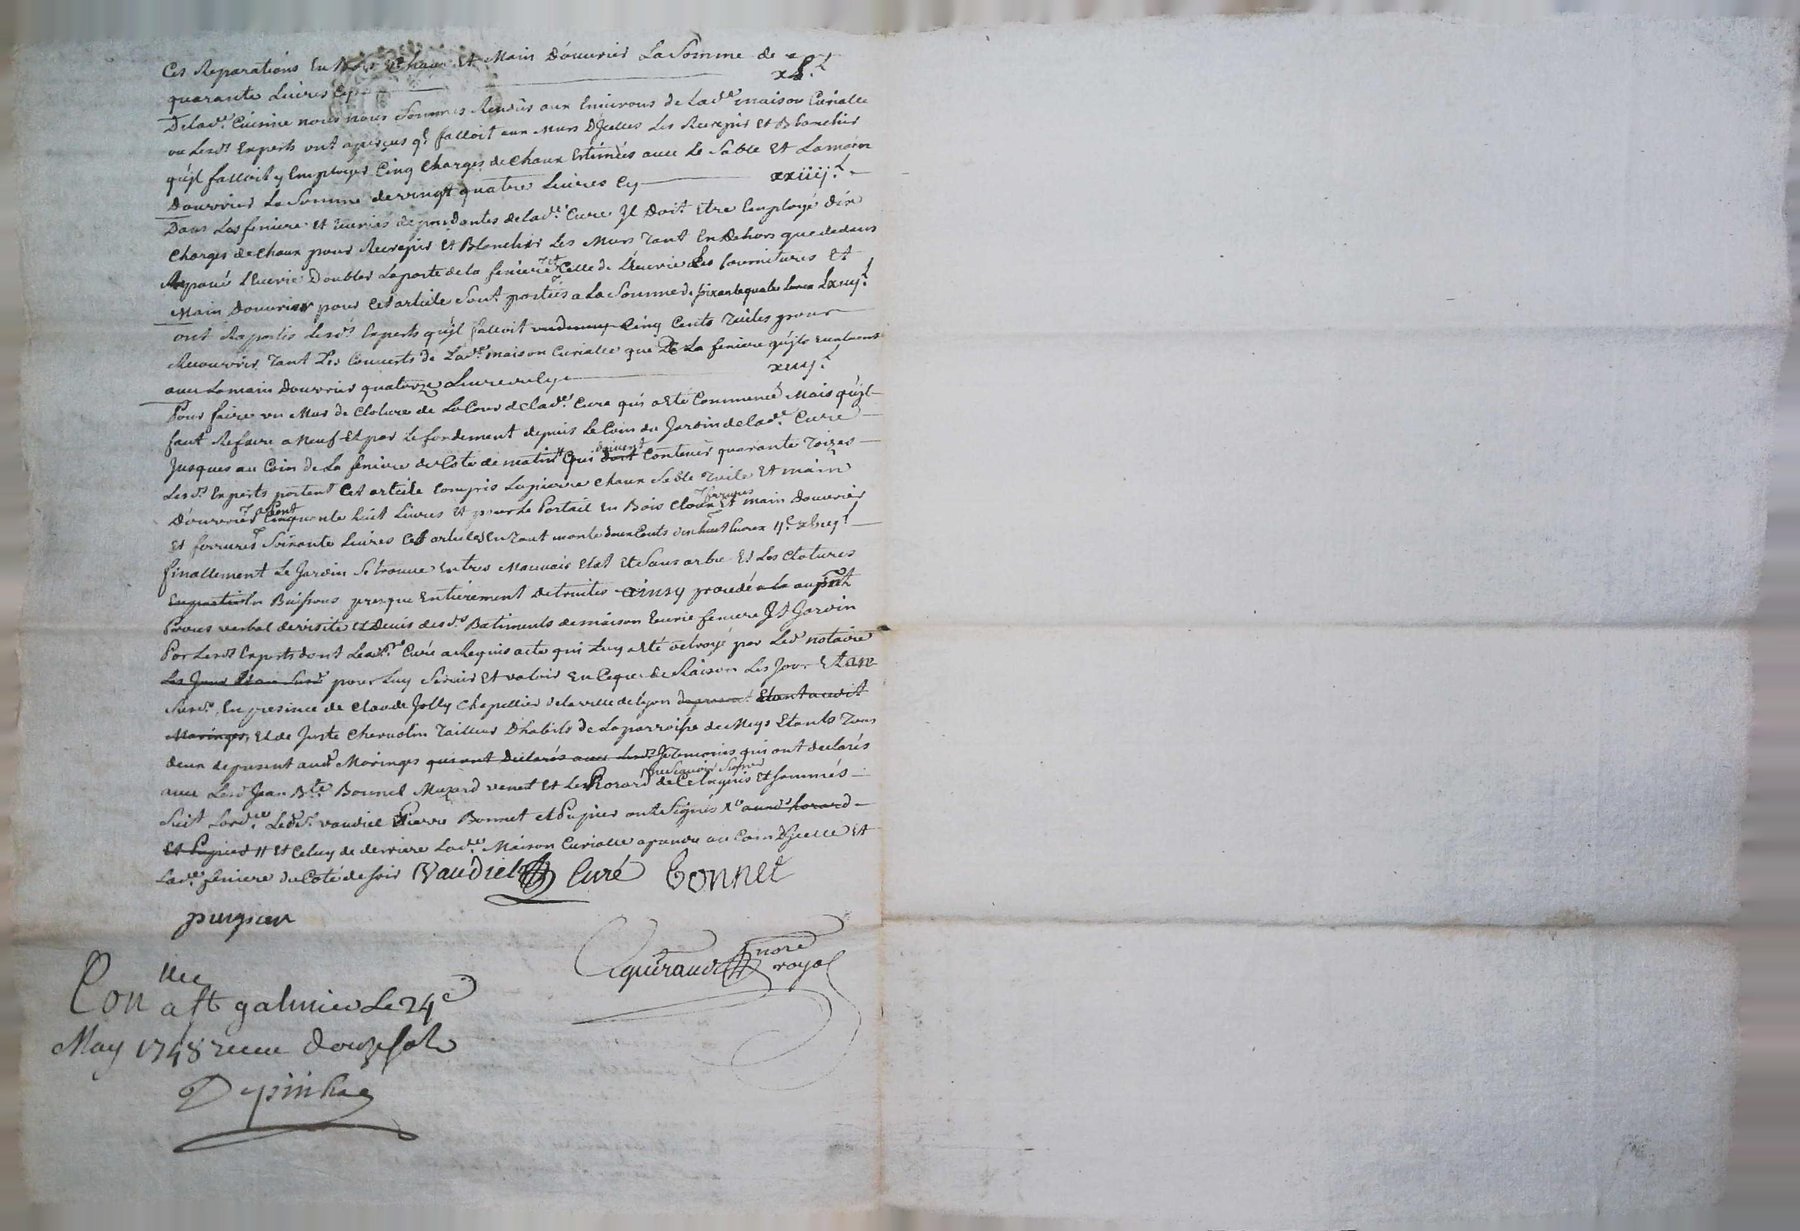 Ces Reparations En Bois Chaux Et Main Douvrier La Somme de
quarante Livres Cy xL.ᴸ
De lad.e Cuisine nous nous Sommes Rendüs aux Environs de Lad.e maison Curialle
ou Lesd.s Experts ont aperçus q.l falloit aux Murs D'Jcelles Les Recrepir Et Blanchir
qu'jl falloit y Employer Cinq Charges de Chaux Estimées avec Le Sable Et Lamain
Douvrier La Somme de vingt quatre Livres Cy xxiiij.ᴸ
Dans Las feniere Et Ecuries dependantes de lad.e Cure Jl Doit Etre Employé dix
Charges de Chaux pour Recrepir Et Blanchir Les Murs Tant En Dehors que dedans
L'Ecurie Doubler Laporte de la feniere et Celle de L'ecurie Les fournitures Et
Main Douvrier pour Cet article Sont portées a La Somme de soixante quatre Livres Lxiiij.ᴸ
ont Raportés Lesd.s Experts qu'jl falloit Cinq Cents Tuiles pour
Recouvrir Tant Les Couverts de Lad.e maison Curialle que De La feniere qu'jls Evaluent
avec Lamain Douvrier quatorze Livres Cy xiiij.ᴸ
Pour faire un Mur de Cloture de La Cour de lad.e Cure qui a Eté Commencé Mais qu'jl
faut Refaire a Neuf Et par Le fondement depuis Le Coin du Jardin de lad.e Cure
Jusques au Coin de La feniere du Coté de matin Qui doivent Contenir quarante Toizes
Lesd.s Experts portent Cet article Compris La pierre Chaux Sable Tuile Et main
D'ouvrier a Cent Cinquante huit Livres Et pour Le Portail En Bois Cloux Et main Douvrier
Et ferrures Soixante Livres Cet article En Tout monte deux Cents dix huit Livres ijᶜ xviij.ᴸ
finallement Le Jardin Se trouve En tres Mauvais Etat Et Sans arbre Et Les Clotures
En Buissons presque Entierement Detruites ainsy procedé a La au pñt
Procés verbal de visitte Et Devis desd.s Batiments de maison Ecurie feniere Et Jardin
Par Lesd.s Experts dont Led.s Curé a Requis acte qui Luy a Eté octroyé par Led.t notaire
Les Jour Et an Susd. pour Luy Servir Et valoir En Ce que de Raison Les Jour Et an
Susd. En presence de Claude Jolly Chapellier de La ville de Lyon
Maringes, Et de Juste Chevalin Tailleur D'habits de La parroisse de Meys Etants Tous
deux de present aud.t Maringes qui ont Declarés avec Les Temoins qui ont declarés
avec Led. Jean B.te Bonnel Mazard venet Et Les Rorard ne Scavoir Signer de Ce Enquis Et Sommés
Suit Lord.ce Led.t S.r Vaudiel Pierre Bonnet Et Pupier ont Signés
Et Pupier # Et Celuy de derriere Lad.e Maison Curialle a prendre au Coin D'Jcelle Et
Lad.e feniere du Coté de soir Vaudiel Curé bonnet
pupier
Aguiraud nore royal
Con.lle a St galmier Le 24e
May 1748 recu douze sols
Depinhac